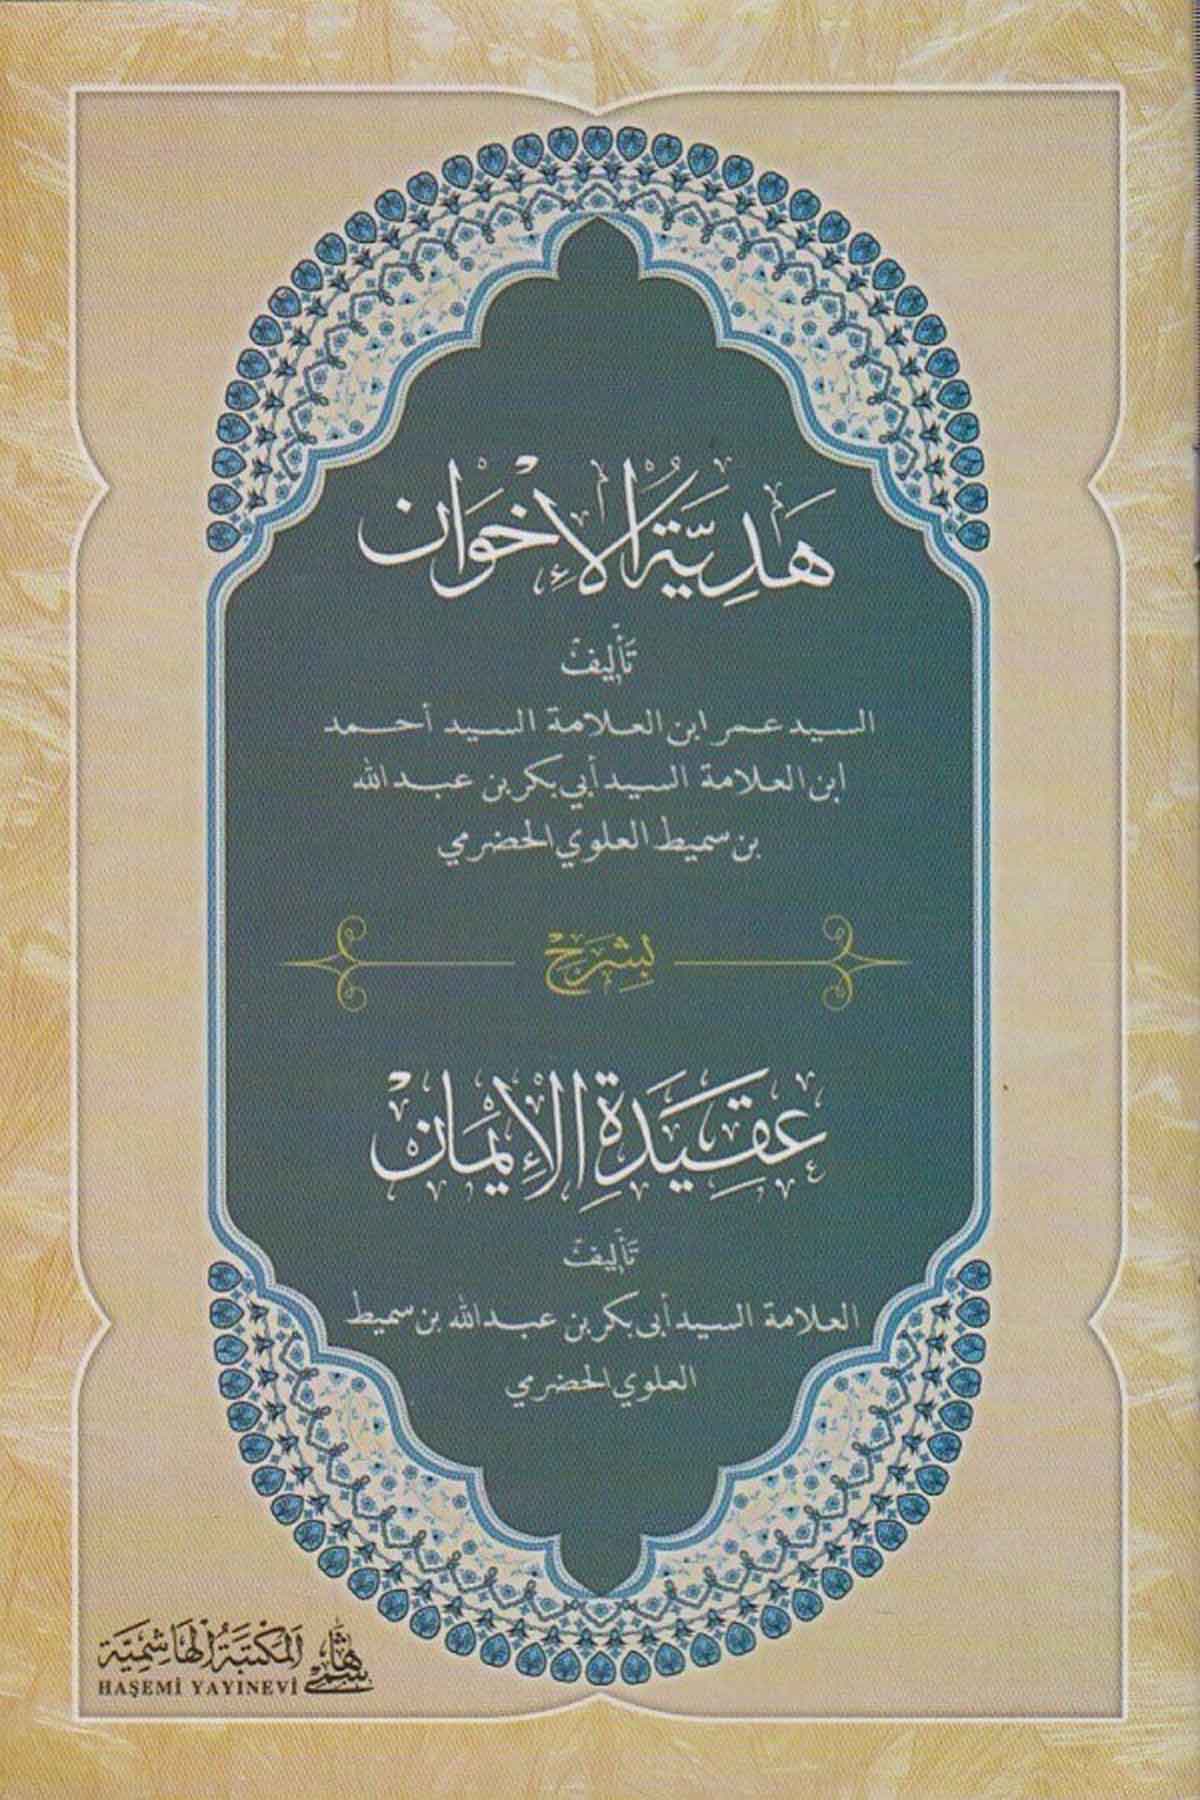 هَدِيَّةُ الْإِخْوَان
تَأْلِيفُ
السيد عمر ابن العلامة السيد أحمد
ابن العلامة السيد أبي بكر بن عبد الله
بن سميط العلوي الحضرمي
بِشَرْحِ
عَقِيدَةِ الْإِيْمَانْ
تَأْلِيفُ
العلامة السيد أبي بكر بن عبد الله بن سميط
العلوي الحضرمي
المَكْتَبَةُ الهَاشِمِيَّة
هاشمي
HAŞEMİ YAYINEVİ